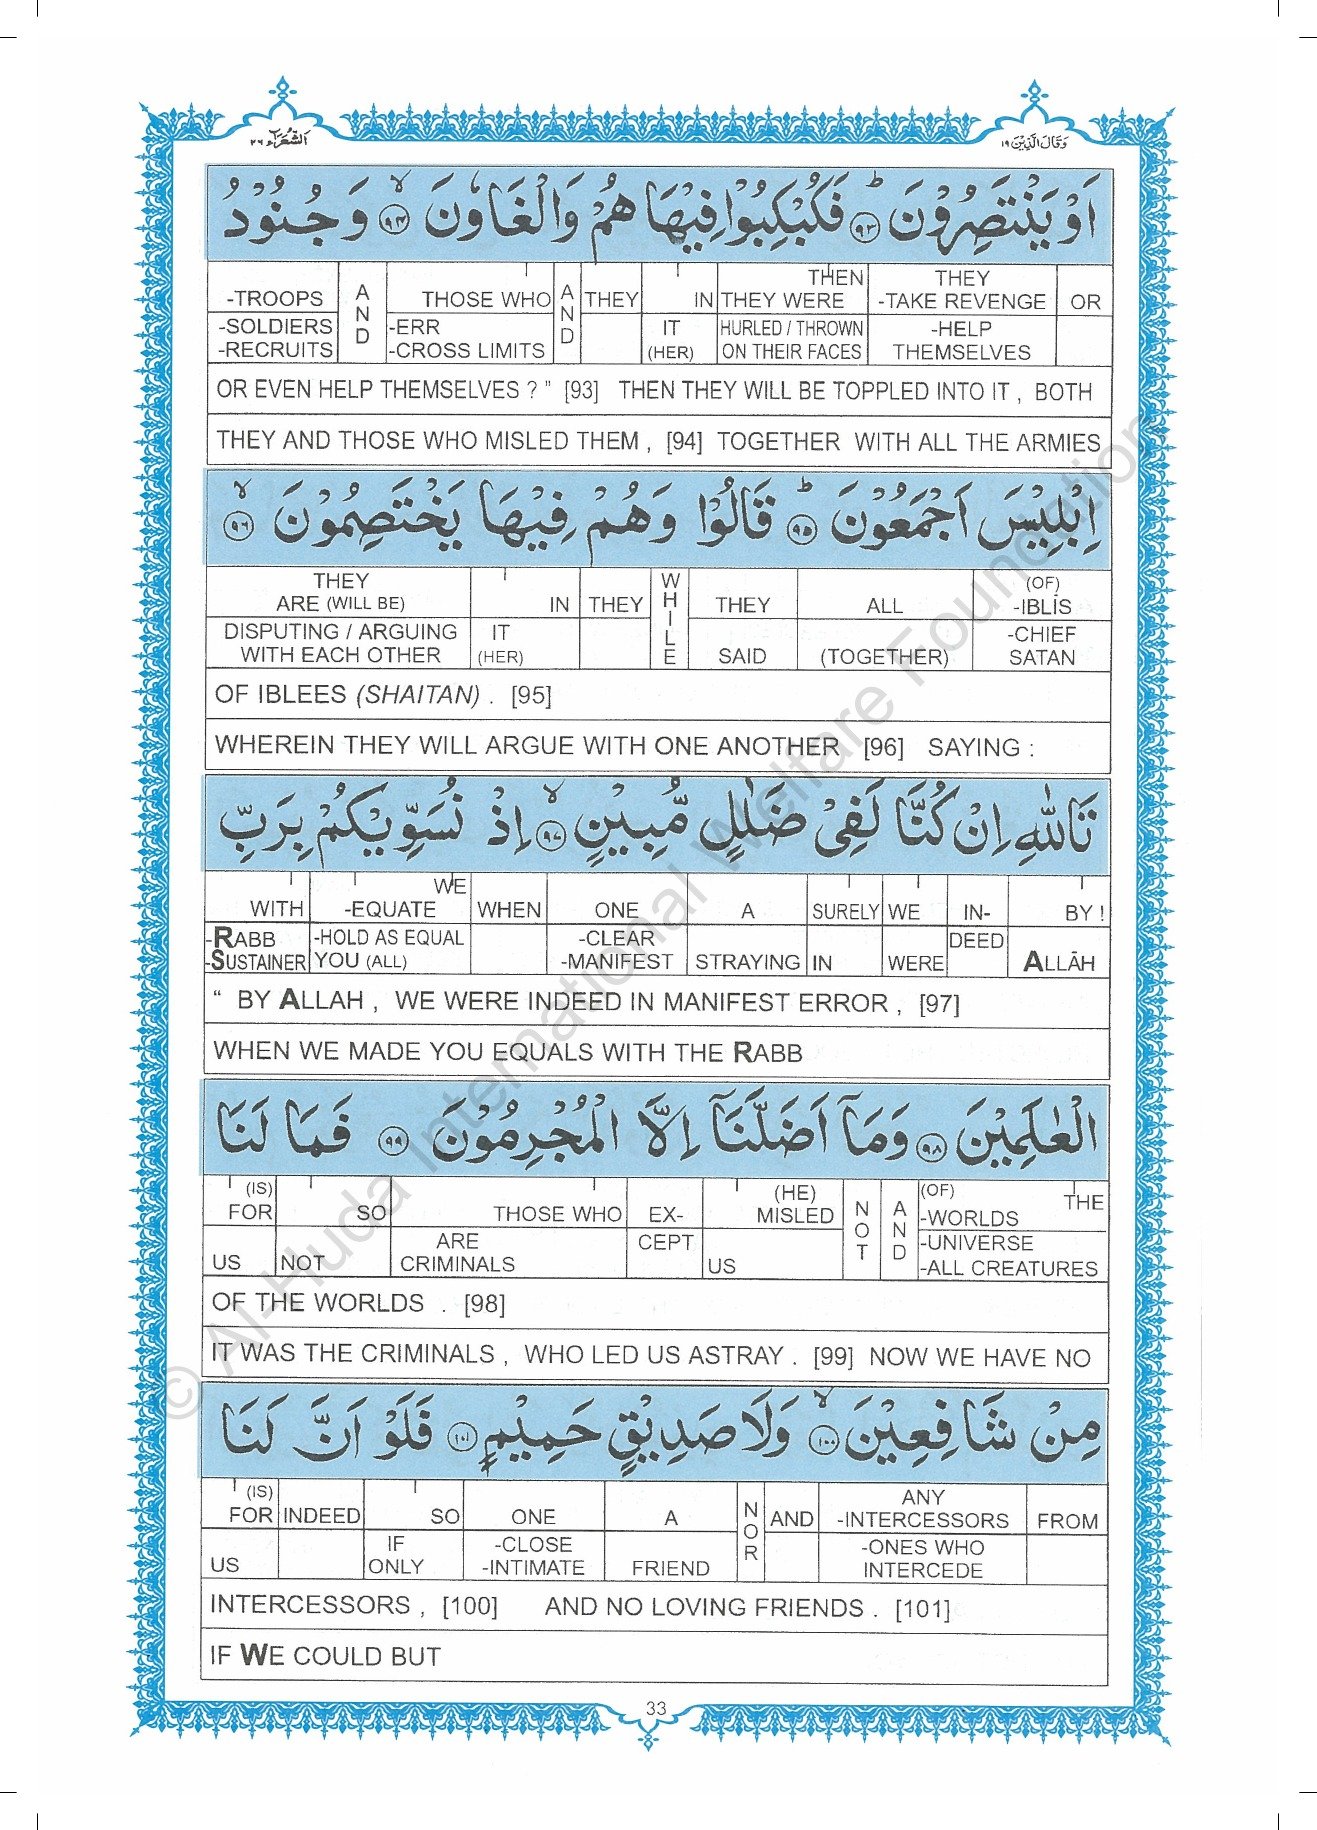 وَقَالَ الَّذِيْنَ ١٩
الشُّعَرَآء ٢٦
اَوْ يَنْتَصِرُوْنَ ؕ ﴿٩٣﴾ فَكُبْكِبُوْا فِيْهَا هُمْ وَالْغَاوٗنَ ۙ ﴿٩٤﴾ وَجُنُوْدُ
-TROOPS A THOSE WHO A THEY IN THEN THEY WERE THEY -TAKE REVENGE OR
-SOLDIERS N -ERR N IT HURLED / THROWN -HELP
-RECRUITS D -CROSS LIMITS D (HER) ON THEIR FACES THEMSELVES
OR EVEN HELP THEMSELVES ? " [93] THEN THEY WILL BE TOPPLED INTO IT , BOTH
THEY AND THOSE WHO MISLED THEM , [94] TOGETHER WITH ALL THE ARMIES
اِبْلِيْسَ اَجْمَعُوْنَ ؕ ﴿٩٥﴾ قَالُوْا وَهُمْ فِيْهَا يَخْتَصِمُوْنَ ۙ ﴿٩٦﴾
THEY W (OF)
ARE (WILL BE) IN THEY H THEY ALL -IBLĪS
DISPUTING / ARGUING IT I L -CHIEF
WITH EACH OTHER (HER) E SAID (TOGETHER) SATAN
OF IBLEES (SHAITAN) . [95]
WHEREIN THEY WILL ARGUE WITH ONE ANOTHER [96] SAYING :
تَاللّٰهِ اِنْ كُنَّا لَفِيْ ضَلٰلٍ مُّبِيْنٍ ۙ ﴿٩٧﴾ اِذْ نُسَوِّيْكُمْ بِرَبِّ
WE
WITH -EQUATE WHEN ONE A SURELY WE IN- BY !
-RABB -HOLD AS EQUAL -CLEAR DEED
-SUSTAINER YOU (ALL) -MANIFEST STRAYING IN WERE ALLĀH
“ BY ALLAH , WE WERE INDEED IN MANIFEST ERROR , [97]
WHEN WE MADE YOU EQUALS WITH THE RABB
الْعٰلَمِيْنَ ﴿٩٨﴾ وَمَآ اَضَلَّنَآ اِلَّا الْمُجْرِمُوْنَ ﴿٩٩﴾ فَمَا لَنَا
(IS) (HE) N A (OF) THE
FOR SO THOSE WHO EX- MISLED O N -WORLDS
ARE CEPT T D -UNIVERSE
US NOT CRIMINALS US -ALL CREATURES
OF THE WORLDS . [98]
IT WAS THE CRIMINALS , WHO LED US ASTRAY . [99] NOW WE HAVE NO
مِنْ شَافِعِيْنَ ۙ ﴿١٠٠﴾ وَلَا صَدِيْقٍ حَمِيْمٍ ﴿١٠١﴾ فَلَوْ اَنَّ لَنَا
(IS) N ANY
FOR INDEED SO ONE A O AND -INTERCESSORS FROM
IF -CLOSE R -ONES WHO
US ONLY -INTIMATE FRIEND INTERCEDE
INTERCESSORS , [100] AND NO LOVING FRIENDS . [101]
IF WE COULD BUT
33
© Al-Huda International Welfare Foundation